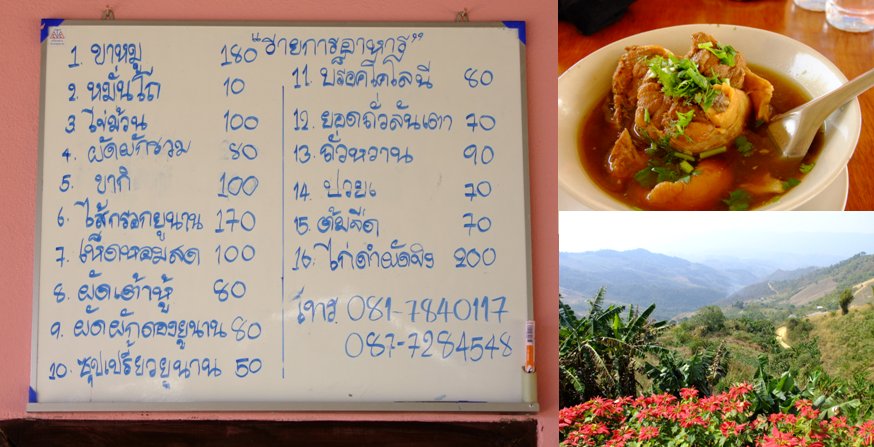 "รายการอาหาร"
1. ขาหมู 180
2. หมั่นโถ 10
3 ไข่ม้วน 100
4. ผัดผักรวม 80
5. ขากิ 100
6. ไส้กรอกยูนาน 170
7. เห็ดหอมสด 100
8. ผัดเต้าหู้ 80
9. ผัดผักดองยูนาน 80
10. ซุปเปรี้ยวยูนาน 50
11. บร็อคโคโลนี 80
12. ยอดถั่วลันเตา 70
13. ถั่วหวาน 90
14. ปวยเ 70
15. ต้มจืด 70
16. ไก่ดำผัดขิง 200
โทร 081-7840117
087-7284548